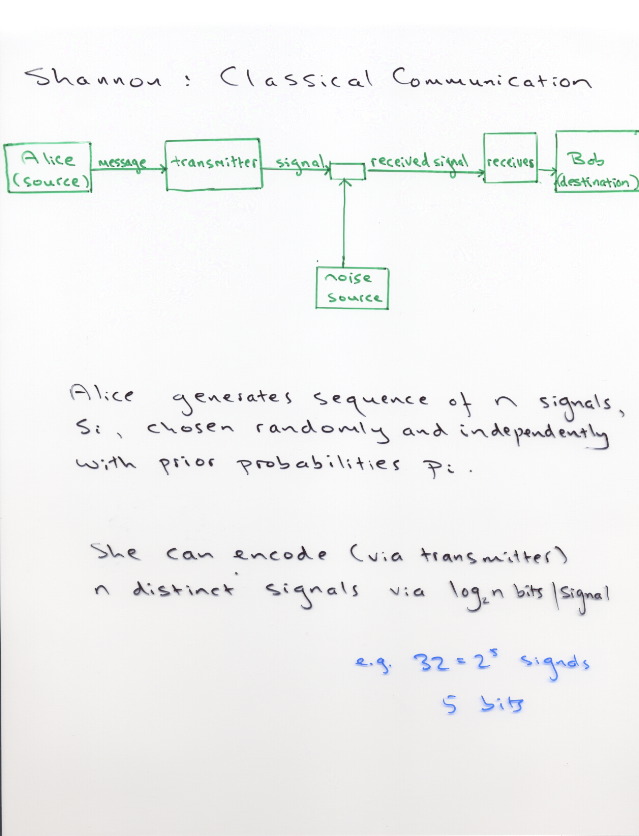 Shannon : Classical Communication
Alice message transmitter signal received signal receives Bob
(source) (destination)
noise
source
Alice generates sequence of n signals,
Si, chosen randomly and independently
with prior probabilities Pi.
She can encode (via transmitter)
n distinct signals via log₂n bits/signal
e.g. 32 = 2⁵ signals
5 bits